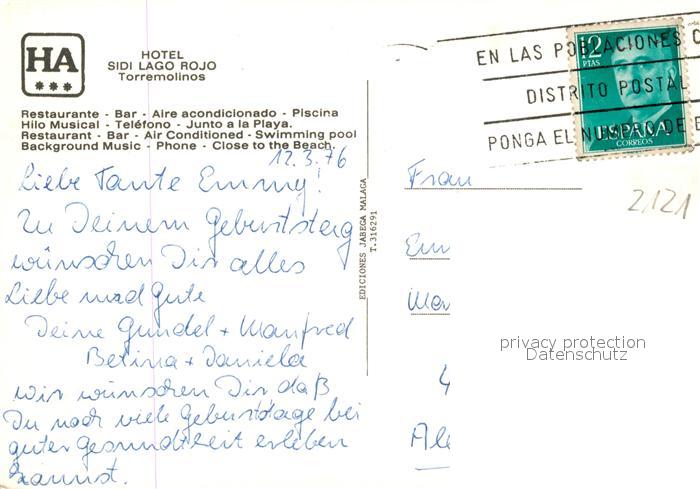 HA
HOTEL
SIDI LAGO ROJO
Torremolinos
Restaurante - Bar - Aire acondicionado - Piscina
Hilo Musical - Teléfono - Junto a la Playa.
Restaurant - Bar - Air Conditioned - Swimming pool
Background Music - Phone - Close to the Beach.
12.3.76
Liebe Tante Emmy!
Zu Deinem Geburtstag
wünschen Dir alles
Liebe und Gute
Deine Gundel + Manfred
Betina + Daniela
Wir wünschen Dir daß
Du noch viele Geburtstage bei
guter Gesundheit erleben
kannst.
EDICIONES JABEGA MALAGA
T.316291
EN LAS POBLACIONES C
DISTRITO POSTAL
PONGA EL NUMERO DE E
12
PTAS
ESPAÑA
CORREOS
2121
Frau
Em
Ale
privacy protection
Datenschutz